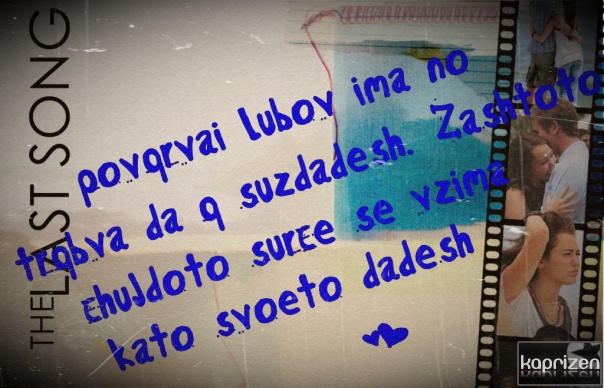 THE LAST SONG
povqrvai lubov ima no
trqbva da q suzdadesh. Zashtoto
chujdoto surce se vzima
kato svoeto dadesh
kaprizen